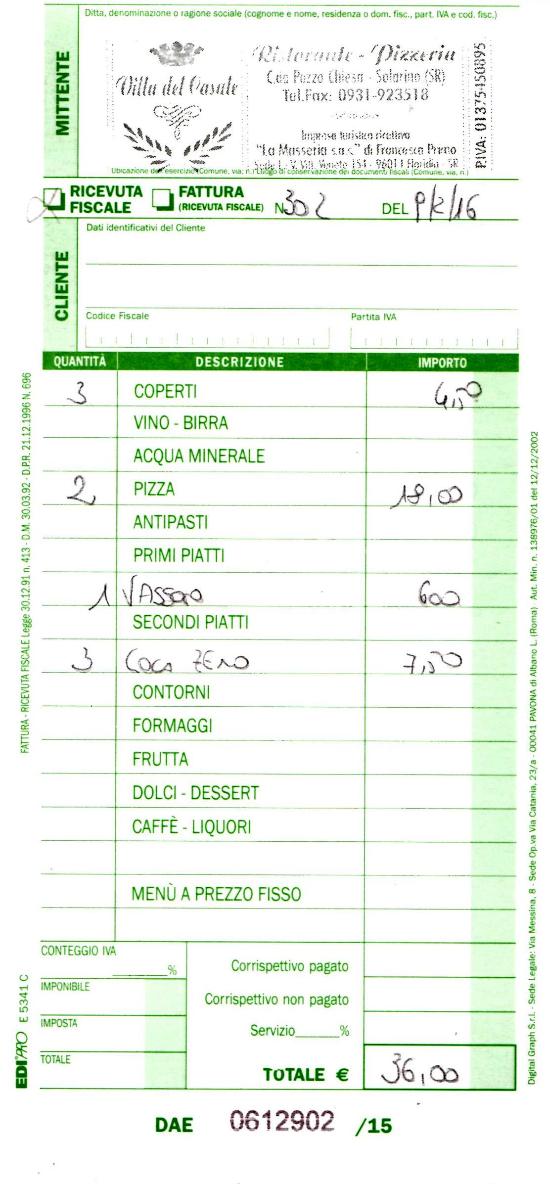 Ditta, denominazione o ragione sociale (cognome e nome, residenza o dom. fisc., part. IVA e cod. fisc.)
MITTENTE
Villa del Casale
Ristorante - Pizzeria
C.da Pozzo Chiesa - Solarino (SR)
Tel.Fax: 0931-923518
Impresa turistico ricettiva
"La Masseria s.a.s" di Francesca Preno
Sede L. V. Vitt. Veneto 154 - 96011 Floridia - SR
P.IVA: 01375450895
Ubicazione dell'esercizio (Comune, via, n.) Luogo di conservazione dei documenti fiscali (Comune, via, n.)
RICEVUTA FISCALE
FATTURA (RICEVUTA FISCALE) N 302 DEL 9/2/16
CLIENTE
Dati identificativi del Cliente
Codice Fiscale Partita IVA
QUANTITÀ DESCRIZIONE IMPORTO
3 COPERTI 4,50
VINO - BIRRA
ACQUA MINERALE
2 PIZZA 18,00
ANTIPASTI
PRIMI PIATTI
1 VASSOIO 600
SECONDI PIATTI
3 COCA ZERO 7,50
CONTORNI
FORMAGGI
FRUTTA
DOLCI - DESSERT
CAFFÈ - LIQUORI
MENÙ A PREZZO FISSO
CONTEGGIO IVA
%
IMPONIBILE
IMPOSTA
TOTALE
Corrispettivo pagato
Corrispettivo non pagato
Servizio______%
TOTALE € 36,00
DAE 0612902 /15
FATTURA - RICEVUTA FISCALE Legge 30.12.91 n. 413 - D.M. 30.03.92 - D.P.R. 21.12.1996 N. 696
EDIPRO E 5341 C
Digital Graph S.r.l. - Sede Legale: Via Messina, 8 - Sede Op.va Via Catania, 23/a - 00041 PAVONA di Albano L. (Roma) Aut. Min. n. 138976/01 del 12/12/2002